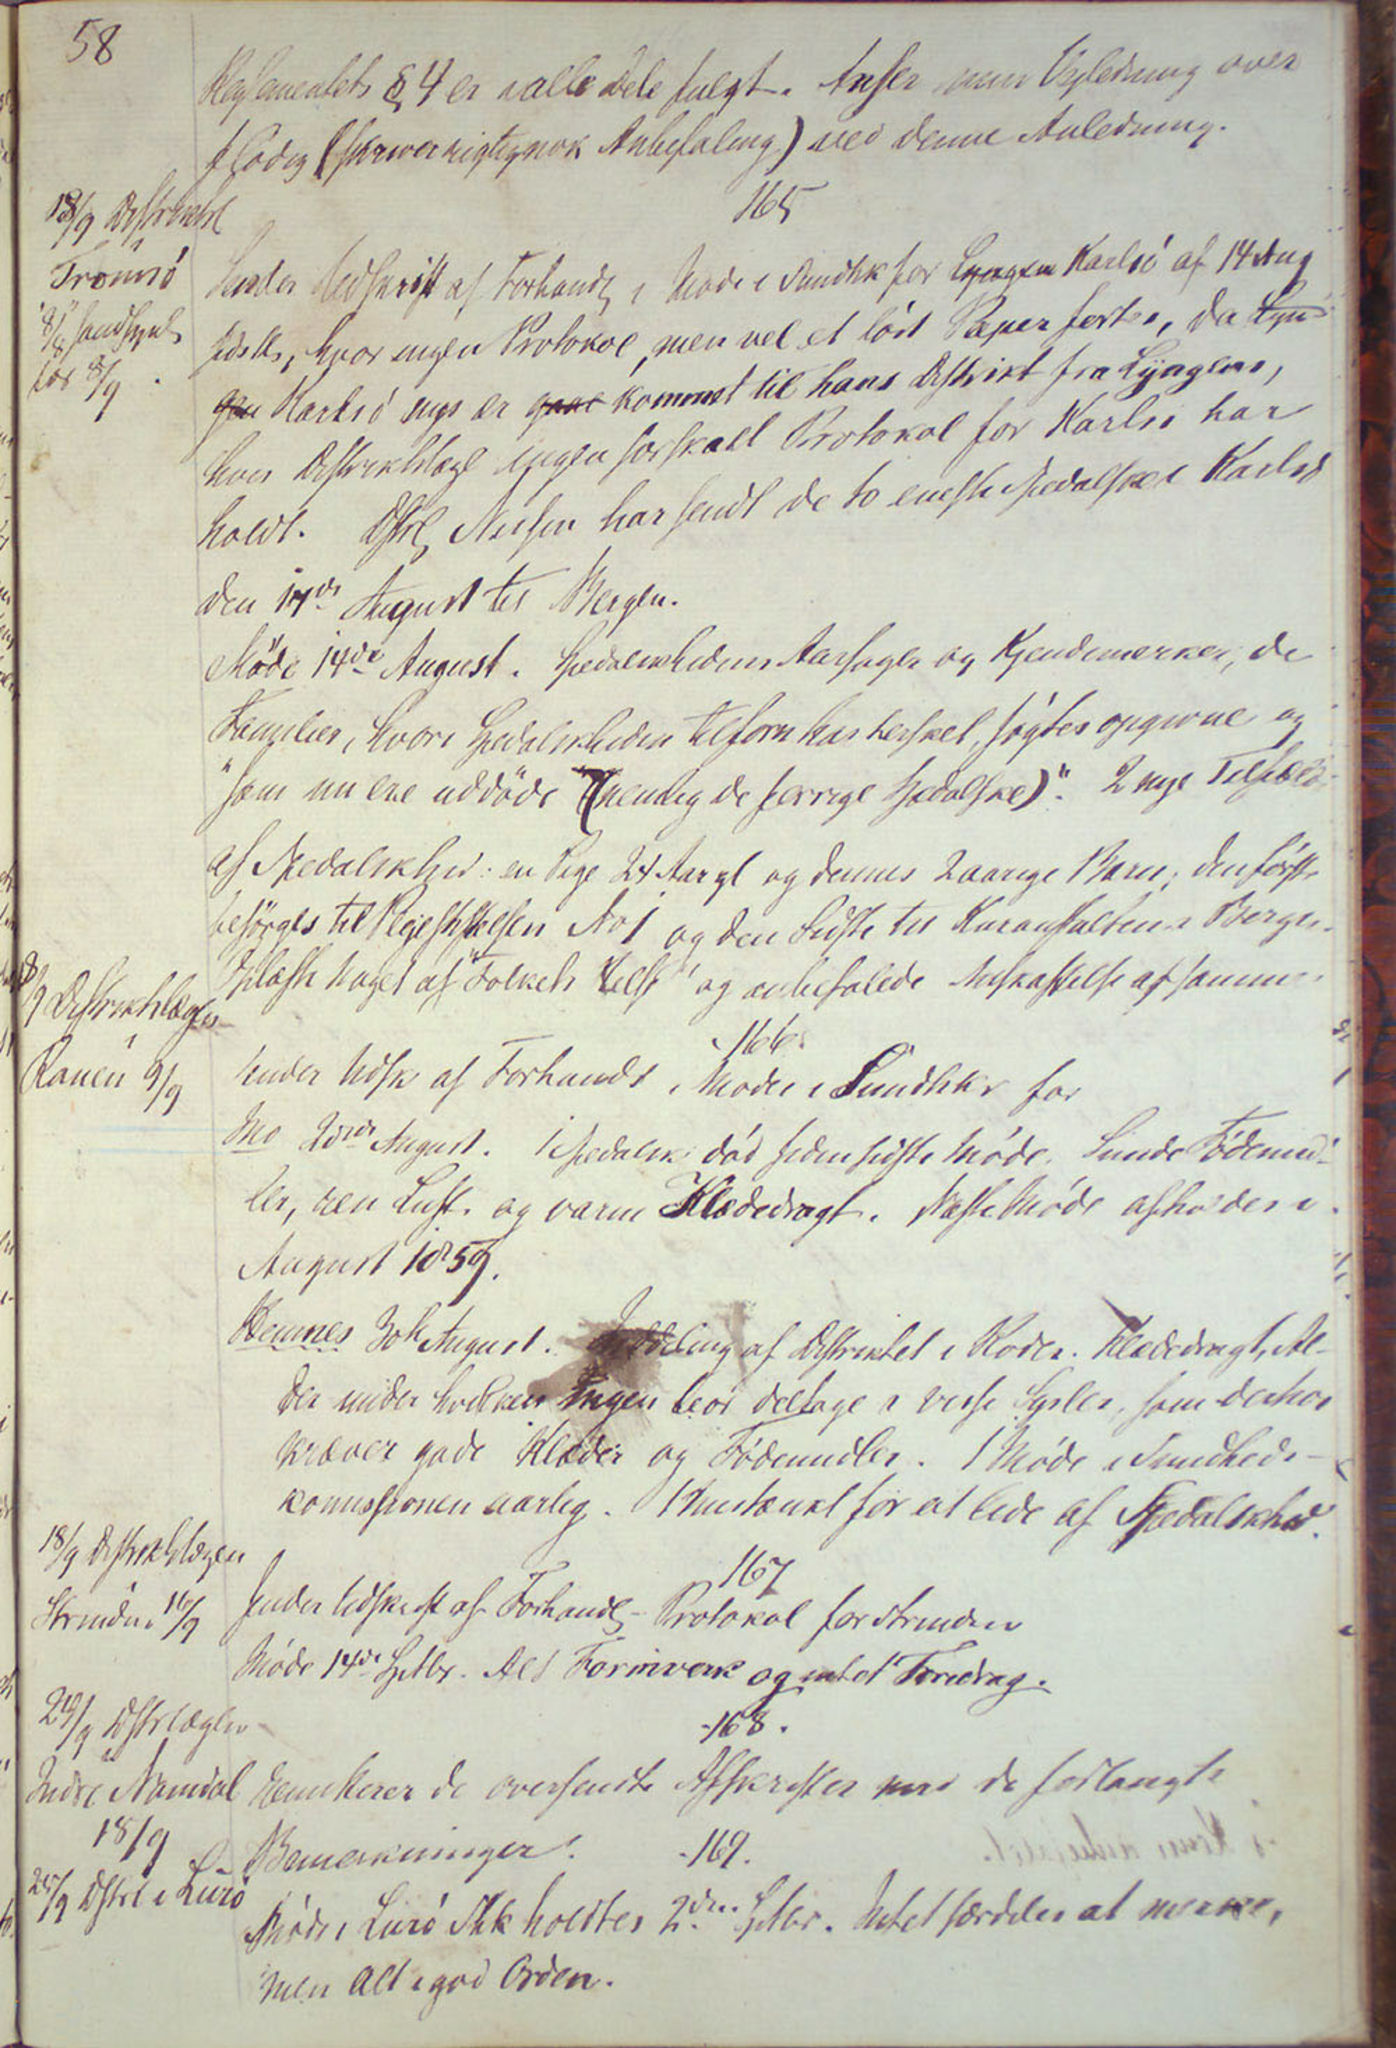 58
Reglementets § 4 er i alle Dele fulgt. Anser min Vejledning over
flødig (skriver rigtignok Anbefaling) ved denne Anledning.
165
18/9 Distriktsl
i
Tromsö
8/9
Sender Udskrift af Forhandl i Møde i Sundhk for Lyngen Karlsö af 14 Aug
sidstl, hvor ingen Protokol, men vel et löst Papir fortes, da Lyn
gen Karlsö nys er kommet til hans Distrikt fra Lyngens,
hvis Distriktslæge ingen særskilt Protokol for Karlsö har
holdt. Dstrl har sendt de to eneste spedalske i Karlsö
den 17de August til Bergen.
Möde 14de August. Spedalskhedens Aarsager og Kjendemærker, de
Familier, hvori Spedalskheden tilforn har hersket, søgtes opgivne og
"som nu ere uddöde (nemlig de forrige Spedalske)". 2 nye Tilfælde
af Spedalskhed: en Pige 24 Aar gl og dennes 2 aarige Barn; den første
besörges til Plejestiftelsen No 1 og den Sidste til Kuranstalten i Bergen.
Oplæste Noget af "Folkets Helse" og anbefalede Anskaffelse af samme
8/9 Distriktslægen
i
Ranen 9/9
166
Sender Udsk af Forhandl i Møder i Sundhkr for
Mo 28de August. 1 Spedalsk död siden sidste Möde. Sunde Födemid-
ler, ren Luft og varm Klædedragt. Næste Möde afholdes i
August 1859.
Hemnes 30te August. Inddeling af Distriktet i Roder. Klædedragt, Al-
der under hvilken Ingen bör deltage i visse Sysler, som derhos
kræver gode Klæder og Födemidler. 1 Möde i Sundheds-
komissionen aarlig. 1 Mistænkt for at lide af Spedalskhed.
18/9 Distriktslægen
Strinden 16/9
167
Sender Udskrift af Forhandl-Protokol for Strinden
Möde 14de Sptbr. Alt Formværk og intet Foredrag.
20/9 Dstrlægen
i
Indre Namdal
18/9
168.
Remitterer de oversendte Afskrifter med de forlangte
Bemærkninger.
169.
25/9 Dstrl i Lurö
Möde i Lurö Shk holdtes 2den Sptbr. Intet særdeles at mærke,
men Alt i god Orden.